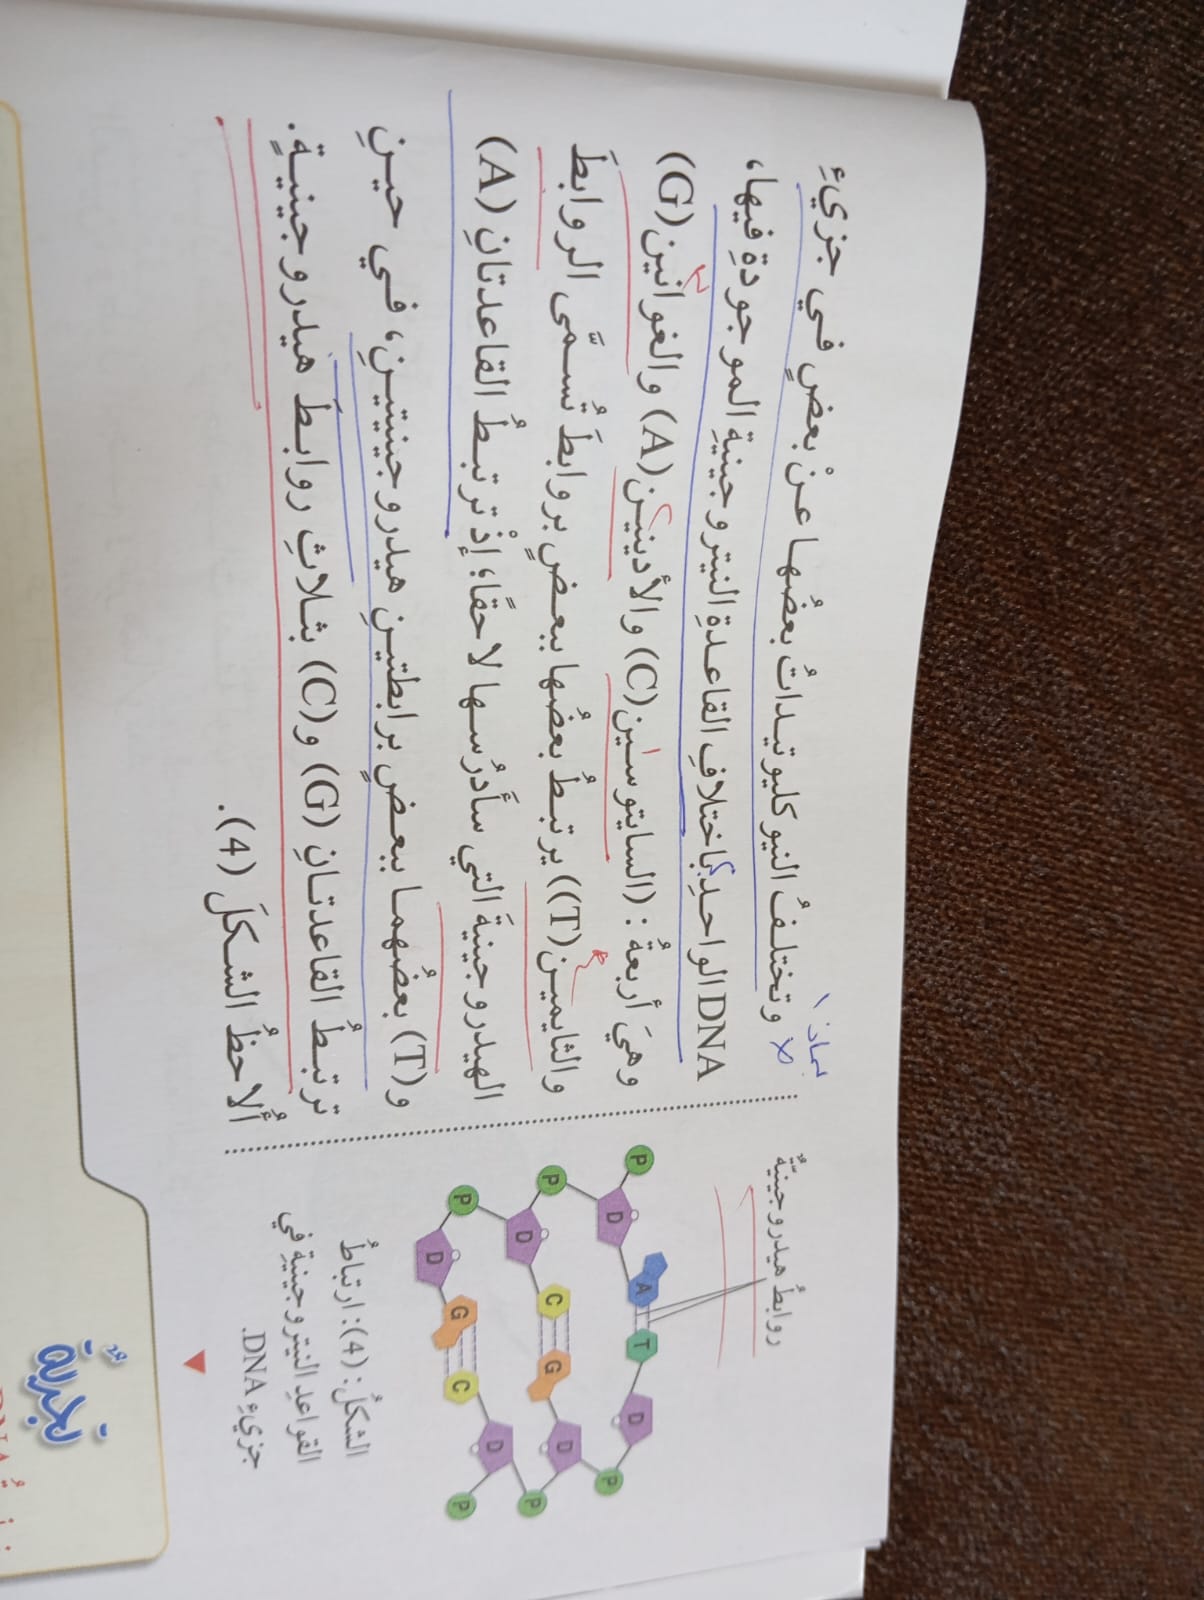 بماذا
وتختلفُ النيوكليوتيداتُ بعضُها عنْ بعضٍ في جزيءِ
DNA الواحدِ باختلافِ القاعدةِ النيتروجينيةِ الموجودةِ فيها،
وهيَ أربعةٌ: (السايتوسين(C) والأدينين(A) والغوانين(G)
والثايمين(T)) يرتبطُ بعضُها ببعضٍ بروابطَ تُسمَّى الروابطَ
الهيدروجينيةَ التي سأدرُسها لاحقًا؛ إذْ ترتبطُ القاعدتانِ (A)
و(T) بعضُهما ببعضٍ برابطتينِ هيدروجينيتينِ، في حينِ
ترتبطُ القاعدتانِ (G) و(C) بثلاثِ روابطَ هيدروجينيةٍ.
أُلاحظُ الشكلَ (4).
روابطُ هيدروجينيّةٌ
P D A T D P
P D C G D P
P D G C D P
الشكلُ: (4): ارتباطُ
القواعدِ النيتروجينيةِ في
جزيءِ DNA.
تَجرِبةٌ